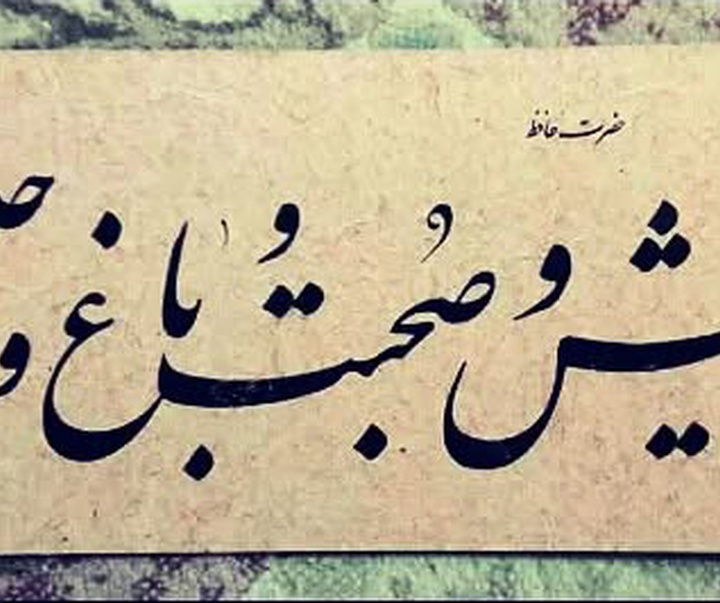 حضرت حافظ
یش و صُحبت و باغ و